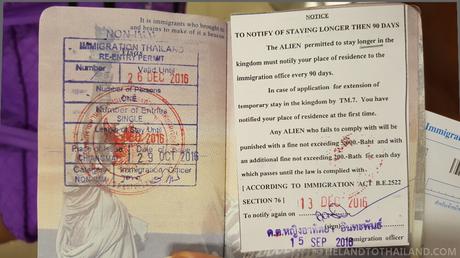 It is immigrants who brought to
and brains to make of it a beacon
NON-IMM
IMMIGRATION THAILAND
RE-ENTRY PERMIT
Number Valid Until
26 DEC 2016
Number of Persons
ONE
Number of Entries
SINGLE
Length of Stay Until
Place of Issue Date
CHIANGMAI 29 OCT 2016
Category Immigration Officer
NON-IMM
NOTICE
TO NOTIFY OF STAYING LONGER THEN 90 DAYS
The ALIEN permitted to stay longer in the
kingdom must notify your place of residence to the
immigration office every 90 days.
In case of application for extension of
temporary stay in the kingdom by TM.7. You have
notified your place of residence at the first time.
Any ALIEN who fails to comply with will be
punished with a fine not exceeding -Baht and with
an additional fine not exceeding 200.-Bath for each day
which passes until the law is complied with.
[ACCORDING TO IMMIGRATION ACT B.E.2522
SECTION 76 ]
To notify again on 13 DEC 2016
(sign)
15 SEP 2016 immigration officer
Immigrati
THELANDTOTHAILAND.COM